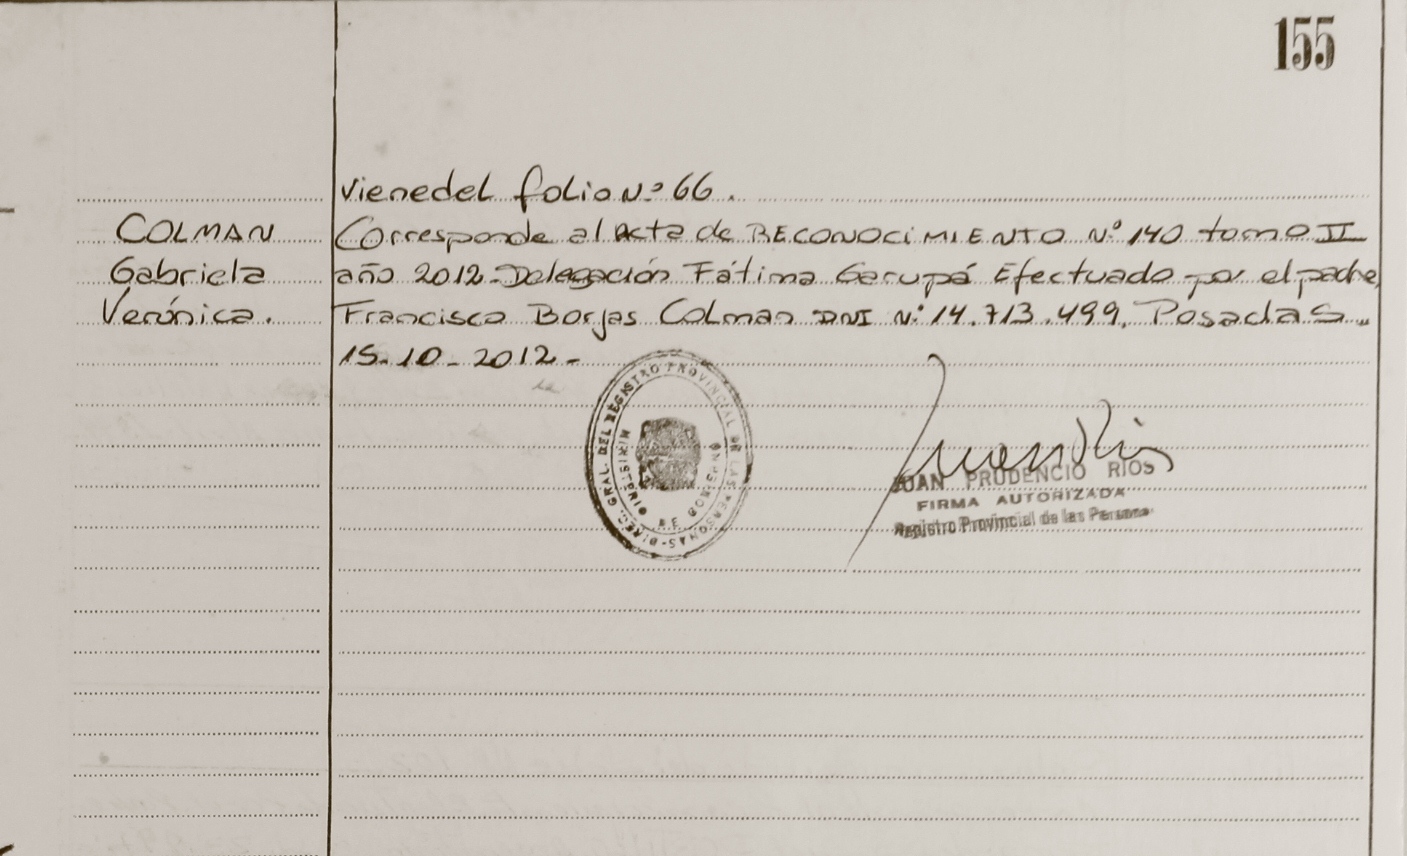 155
Viene del folio N° 66.
COLMAN
Gabriela
Verónica.
Corresponde al acta de RECONOCIMIENTO N° 140 tomo II
año 2012 - Delegación Fátima Garupá Efectuado por el padre,
Francisco Borjas Colman DNI N° 14.713.499. Posadas
15-10-2012-
DIREC. GRAL. DEL REGISTRO PROVINCIAL DE LAS PERSONAS
MINISTERIO DE GOBIERNO
JUAN PRUDENCIO RIOS
FIRMA AUTORIZADA
Registro Provincial de las Personas